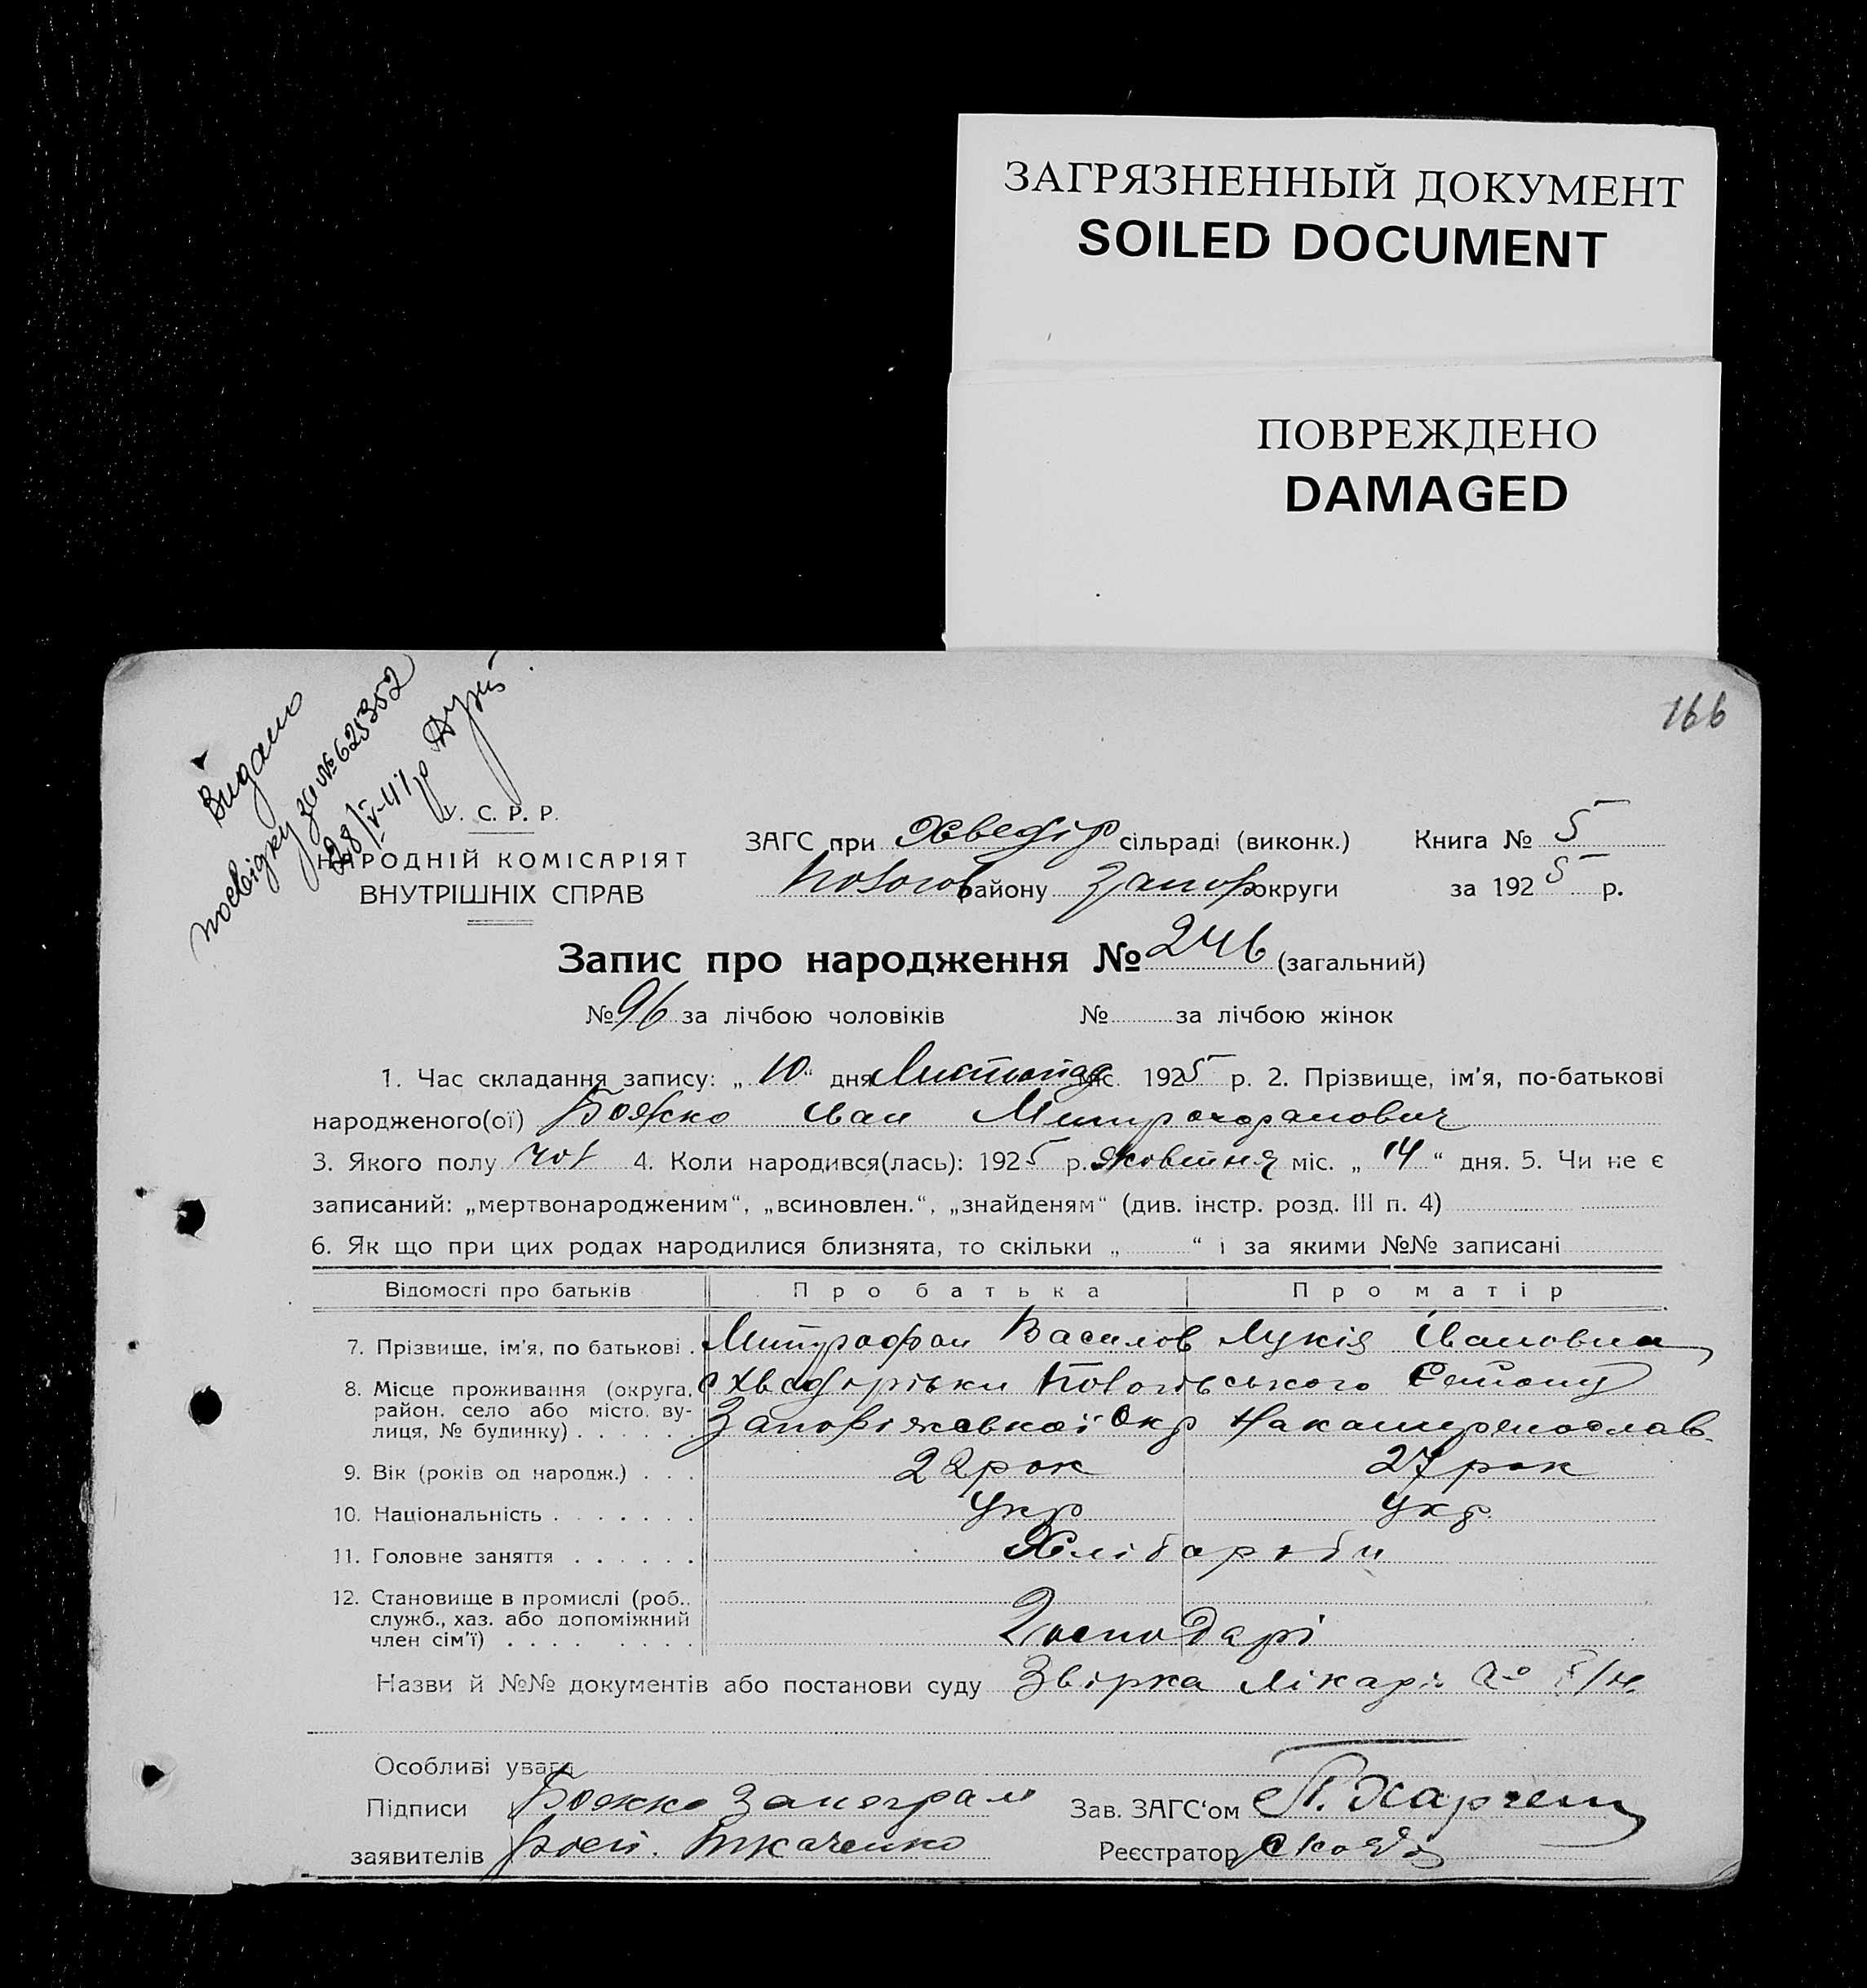 ЗАГРЯЗНЕННЫЙ ДОКУМЕНТ
SOILED DOCUMENT
ПОВРЕЖДЕНО
DAMAGED
166
Видано
посвідку за № 625352
28/IV-41 р
У. С. Р. Р.
НАРОДНІЙ КОМІСАРІЯТ
ВНУТРІШНІХ СПРАВ
ЗАГС при Хведір сільраді (виконк.) Книга № 5
Пологов району Запор округи за 1925 р.
Запис про народження № 246 (загальний)
№ 96 за лічбою чоловіків № за лічбою жінок
1. Час складання запису: „10“ дня Листопад міс. 1925 р. 2. Прізвище, ім'я, по-батькові
народженого(ої) Божко Иван Митрохфанович
3. Якого полу чол 4. Коли народився(лась): 1925 р. Жовтня міс. „14“ дня. 5. Чи не є
записаний: „мертвонародженим“, „всиновлен.“, „знайденям“ (див. інстр. розд. III п. 4)
6. Як що при цих родах народилися близнята, то скільки „ “ і за якими №№ записані
Відомості про батьків Про батька Про матір
7. Прізвище, ім'я, по батькові . Митрофан Василов Лукія Івановна
8. Місце проживання (округа, с Хведорівки Пологівського
район, село або місто, ву- Запоріжської Окр
лиця, № будинку)
9. Вік (років од народж.) . . . 22 рок 27 рок
10. Національність . . . . . . . Укр Укр.
11. Головне заняття . . . . . . Хліборoби
12. Становище в промислі (роб.,
служб., хаз. або допоміжний
член сім'ї) . . . . . . . . Господарі
Назви й №№ документів або постанови суду Звірка Лікарі
Особливі уваги
Підписи Божко Зав. ЗАГС'ом П. Харчен
заявителів Ткаченко Реєстратор